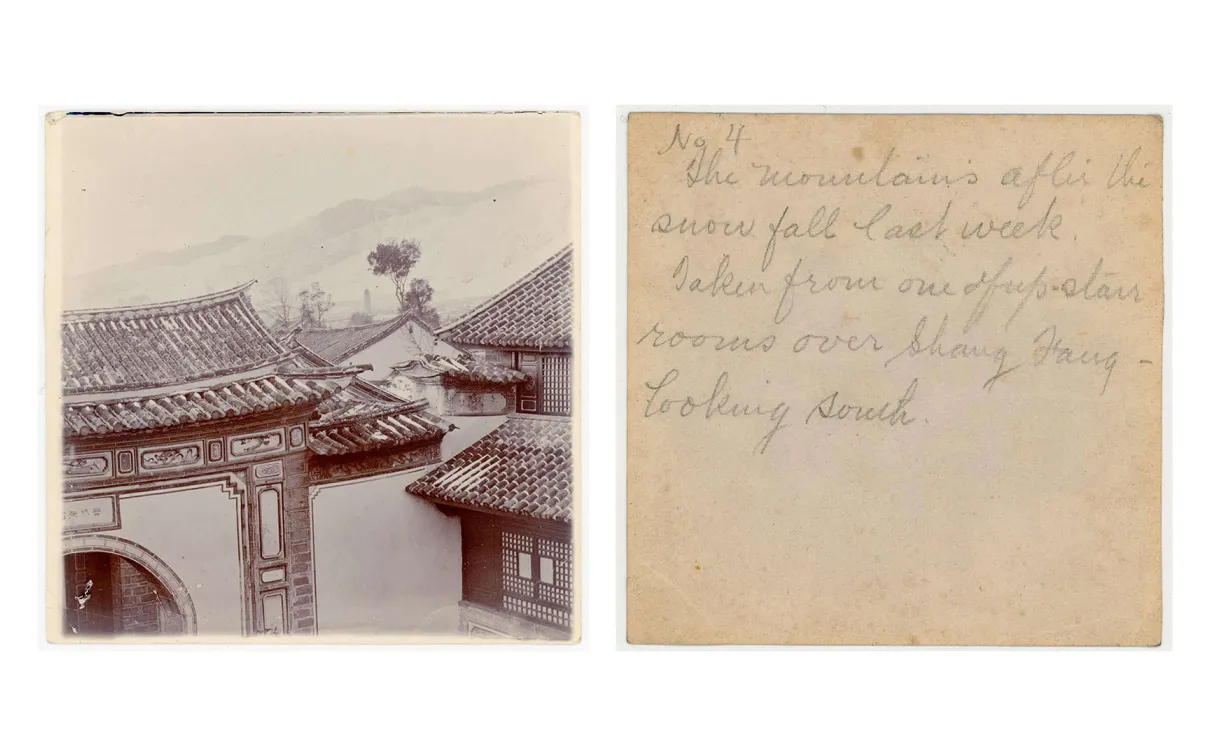 No 4
The mountains after the
snow fall last week.
Taken from one of up-stair
rooms over Shang Fang -
Looking south.